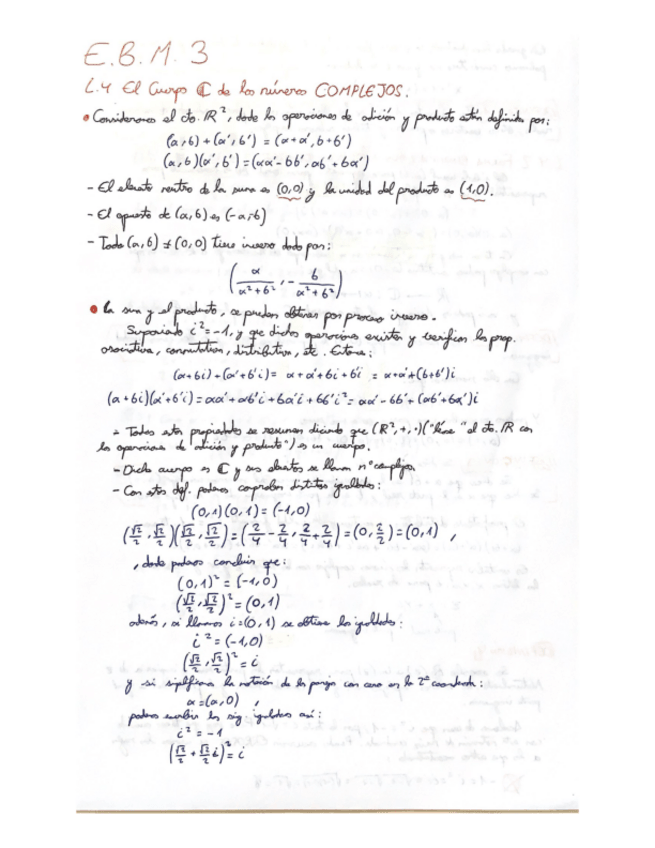 E.B.M. 3
L.4 El Cuerpo ℂ de los números COMPLEJOS.
• Consideremos el cto. ℝ², donde las operaciones de adición y producto están definidas por:
(a,b)+(a',b') = (a+a',b+b')
(a,b)(a',b') = (aa'-bb',ab'+ba')
- El elemento neutro de la suma es (0,0) y la unidad del producto es (1,0).
- El opuesto de (a,b) es (-a,-b)
- Todo (a,b) ≠ (0,0) tiene inverso dado por:
(a/(a²+b²), -b/(a²+b²))
• La suma y el producto, se pueden obtener por proceso inverso.
Suponiendo i²=-1, y que dichas operaciones existen y verifican las prop.
asociativa, conmutativa, distributiva, etc. Entonces:
(a+bi)+(a'+b'i) = a+a'+bi+b'i = a+a'+(b+b')i
(a+bi)(a'+b'i) = aa'+ab'i+ba'i+bb'i² = aa'-bb'+(ab'+ba')i
Todas estas propiedades se resumen diciendo que (ℝ²,+,·) ("léase" el cto. ℝ con
las operaciones de adición y producto") es un cuerpo.
- Dicho cuerpo es ℂ y sus elementos se llaman nº complejos.
- Con estas def. podemos comprobar distintas igualdades:
(0,1)(0,1) = (-1,0)
(√2/2, √2/2)(√2/2, √2/2) = (2/4 - 2/4, 2/4 + 2/4) = (0, 2/2) = (0,1) ,
, donde podemos concluir que:
(0,1)² = (-1,0)
(√2/2, √2/2)² = (0,1)
además, si llamamos i=(0,1) se obtiene las igualdades:
i² = (-1,0)
(√2/2, √2/2)² = i
y si simplificamos la notación de las parejas con cero en la 2ª coordenada:
a = (a,0) ,
podemos escribir las sig. igualdades así:
i² = -1
(√2/2 + √2/2 i)² = i